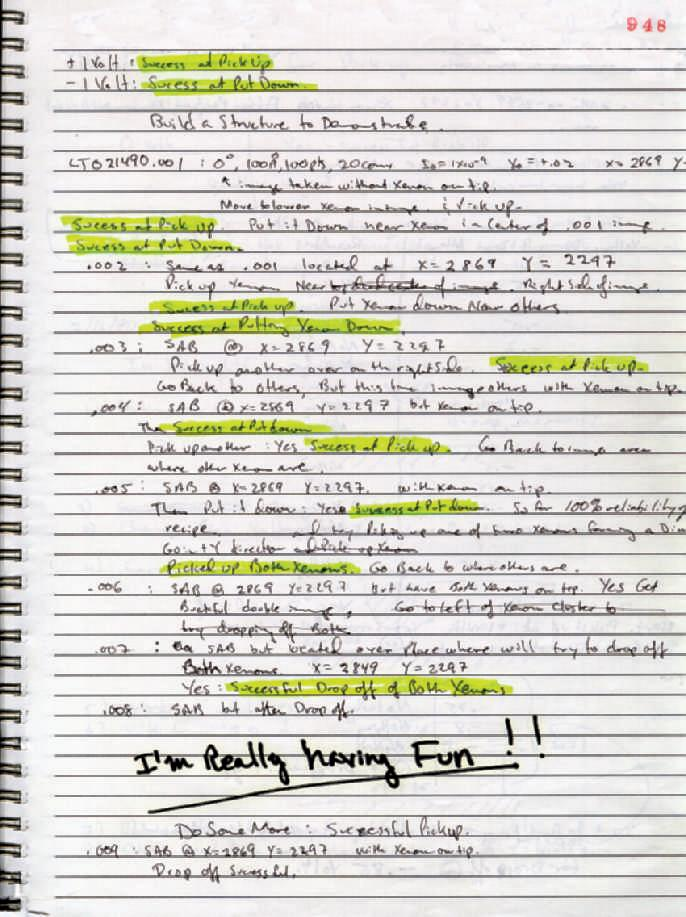 948
+ 1 Volt : Success at Pick Up
- 1 Volt : Sucess at Put Down.
Build a Structure to Demonstrate.
LT021490.001 : 0°, 100Å, 100pts, 20 S0 = 1x10-9 Y0 = +.02 X= 2869 Y=
↑ image taken without Xenon on tip.
Move to lower Xenon in image & Pick up.
Sucess at Pick up. Put it Down near Xenon in Center of .001 image.
Sucess at Put Down.
.002 : Same as .001 located at X= 2869 Y= 2297
Pick up Xenon Near of image. Right side of image.
Sucess at Pick up. Put Xenon down Near others.
Success at Putting Xenon Down.
.003 : SAB @ X= 2869 Y= 2297
Pick up another over on the right side. Success at Pick up.
Go Back to others, But this time image others with Xenon on tip.
.004 : SAB @ X=2869 Y=2297 but Xenon on tip.
Then Success at Put down
Pick up another : Yes Success at Pick up. Go Back to image area
where other Xenon are.
.005 : SAB @ X= 2869 Y=2297. with Xenon on tip.
Then Put it down : Yes Success at Put down. So far 100% reliability of
recipe. and try Picking up one of two Xenons forming a Dim
Go in +Y direction and Pick up Xenon
Picked up Both Xenons. Go Back to where others are.
.006 : SAB @ 2869 Y=2297 but have Both Xenons on tip. Yes Get
Beautiful double image, Go to left of Xenon cluster to
try dropping off Both.
.007 : SAB but located over Place where will try to drop off
Both Xenons. X= 2849 Y= 2297
Yes : Successful Drop off of Both Xenons
.008 : SAB but after Drop off.
I'm Really having Fun !!
Do Some More : Successful Pickup.
.009 : SAB @ X=2869 Y= 2297 with Xenon on tip.
Drop off Sucessful.